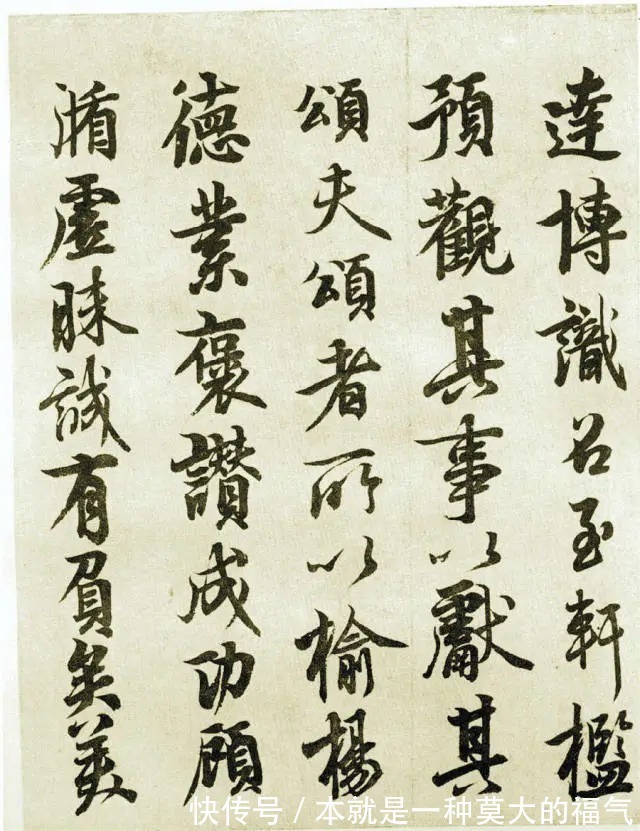 達博識召至軒檻
預觀其事以獻其
頌夫頌者所以榆楊
德業褒讚成功顧
循虛昧誠有負矣美
快传号/本就是一种莫大的福气